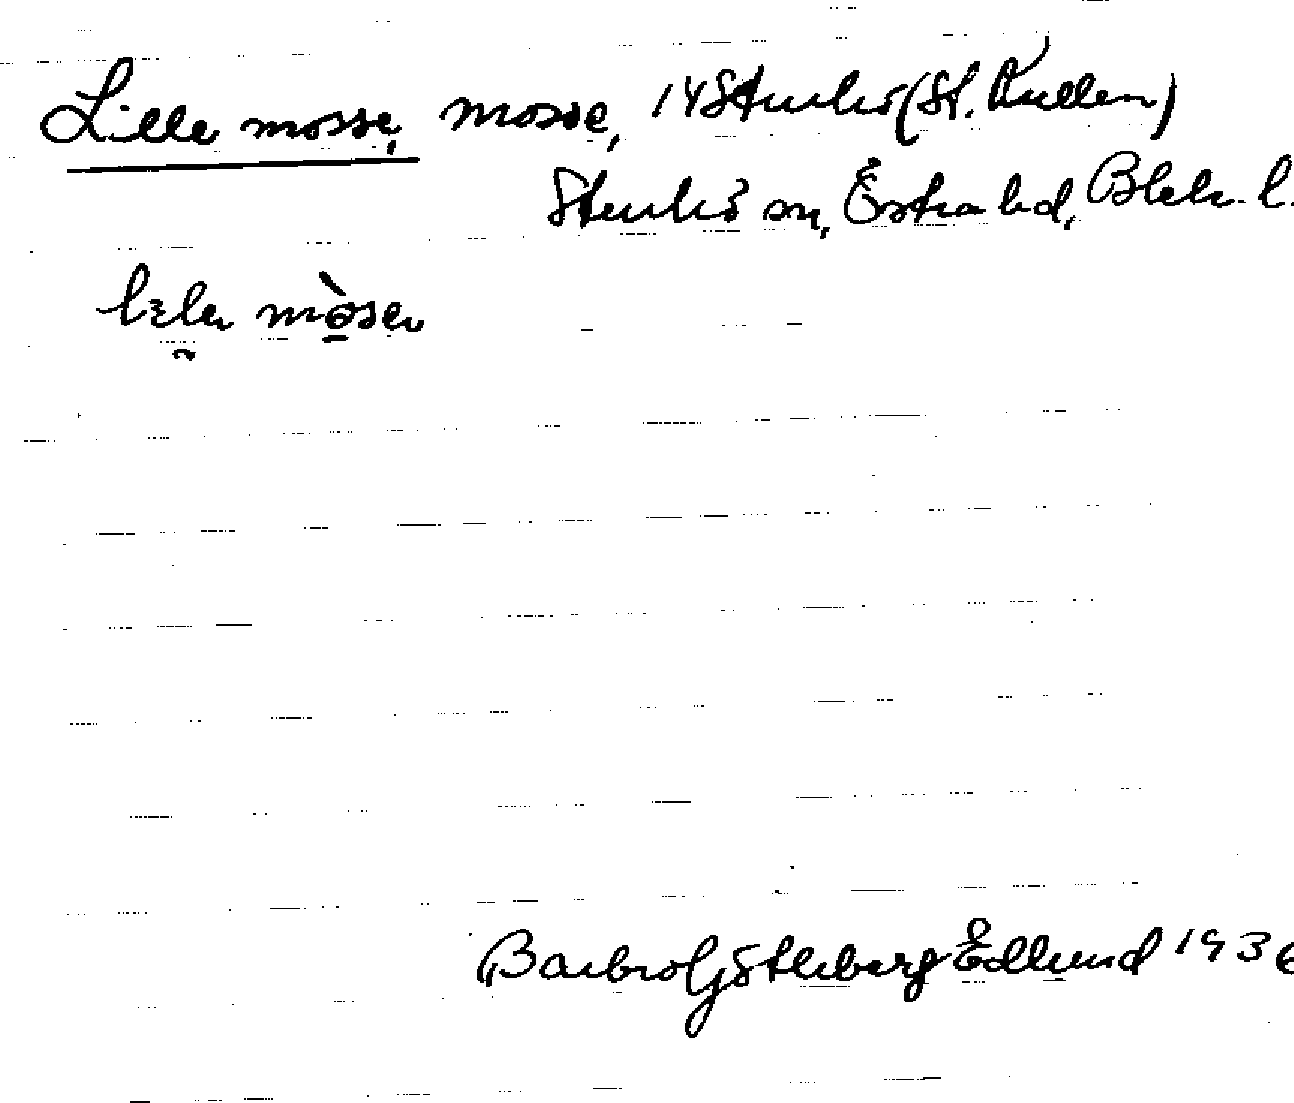 Lille mosse, mosse, 14 Sturkö (St. Kullen)
Sturkö sn, Östra hd,Blek. l.
Barbro Götleborg Edlund 1936